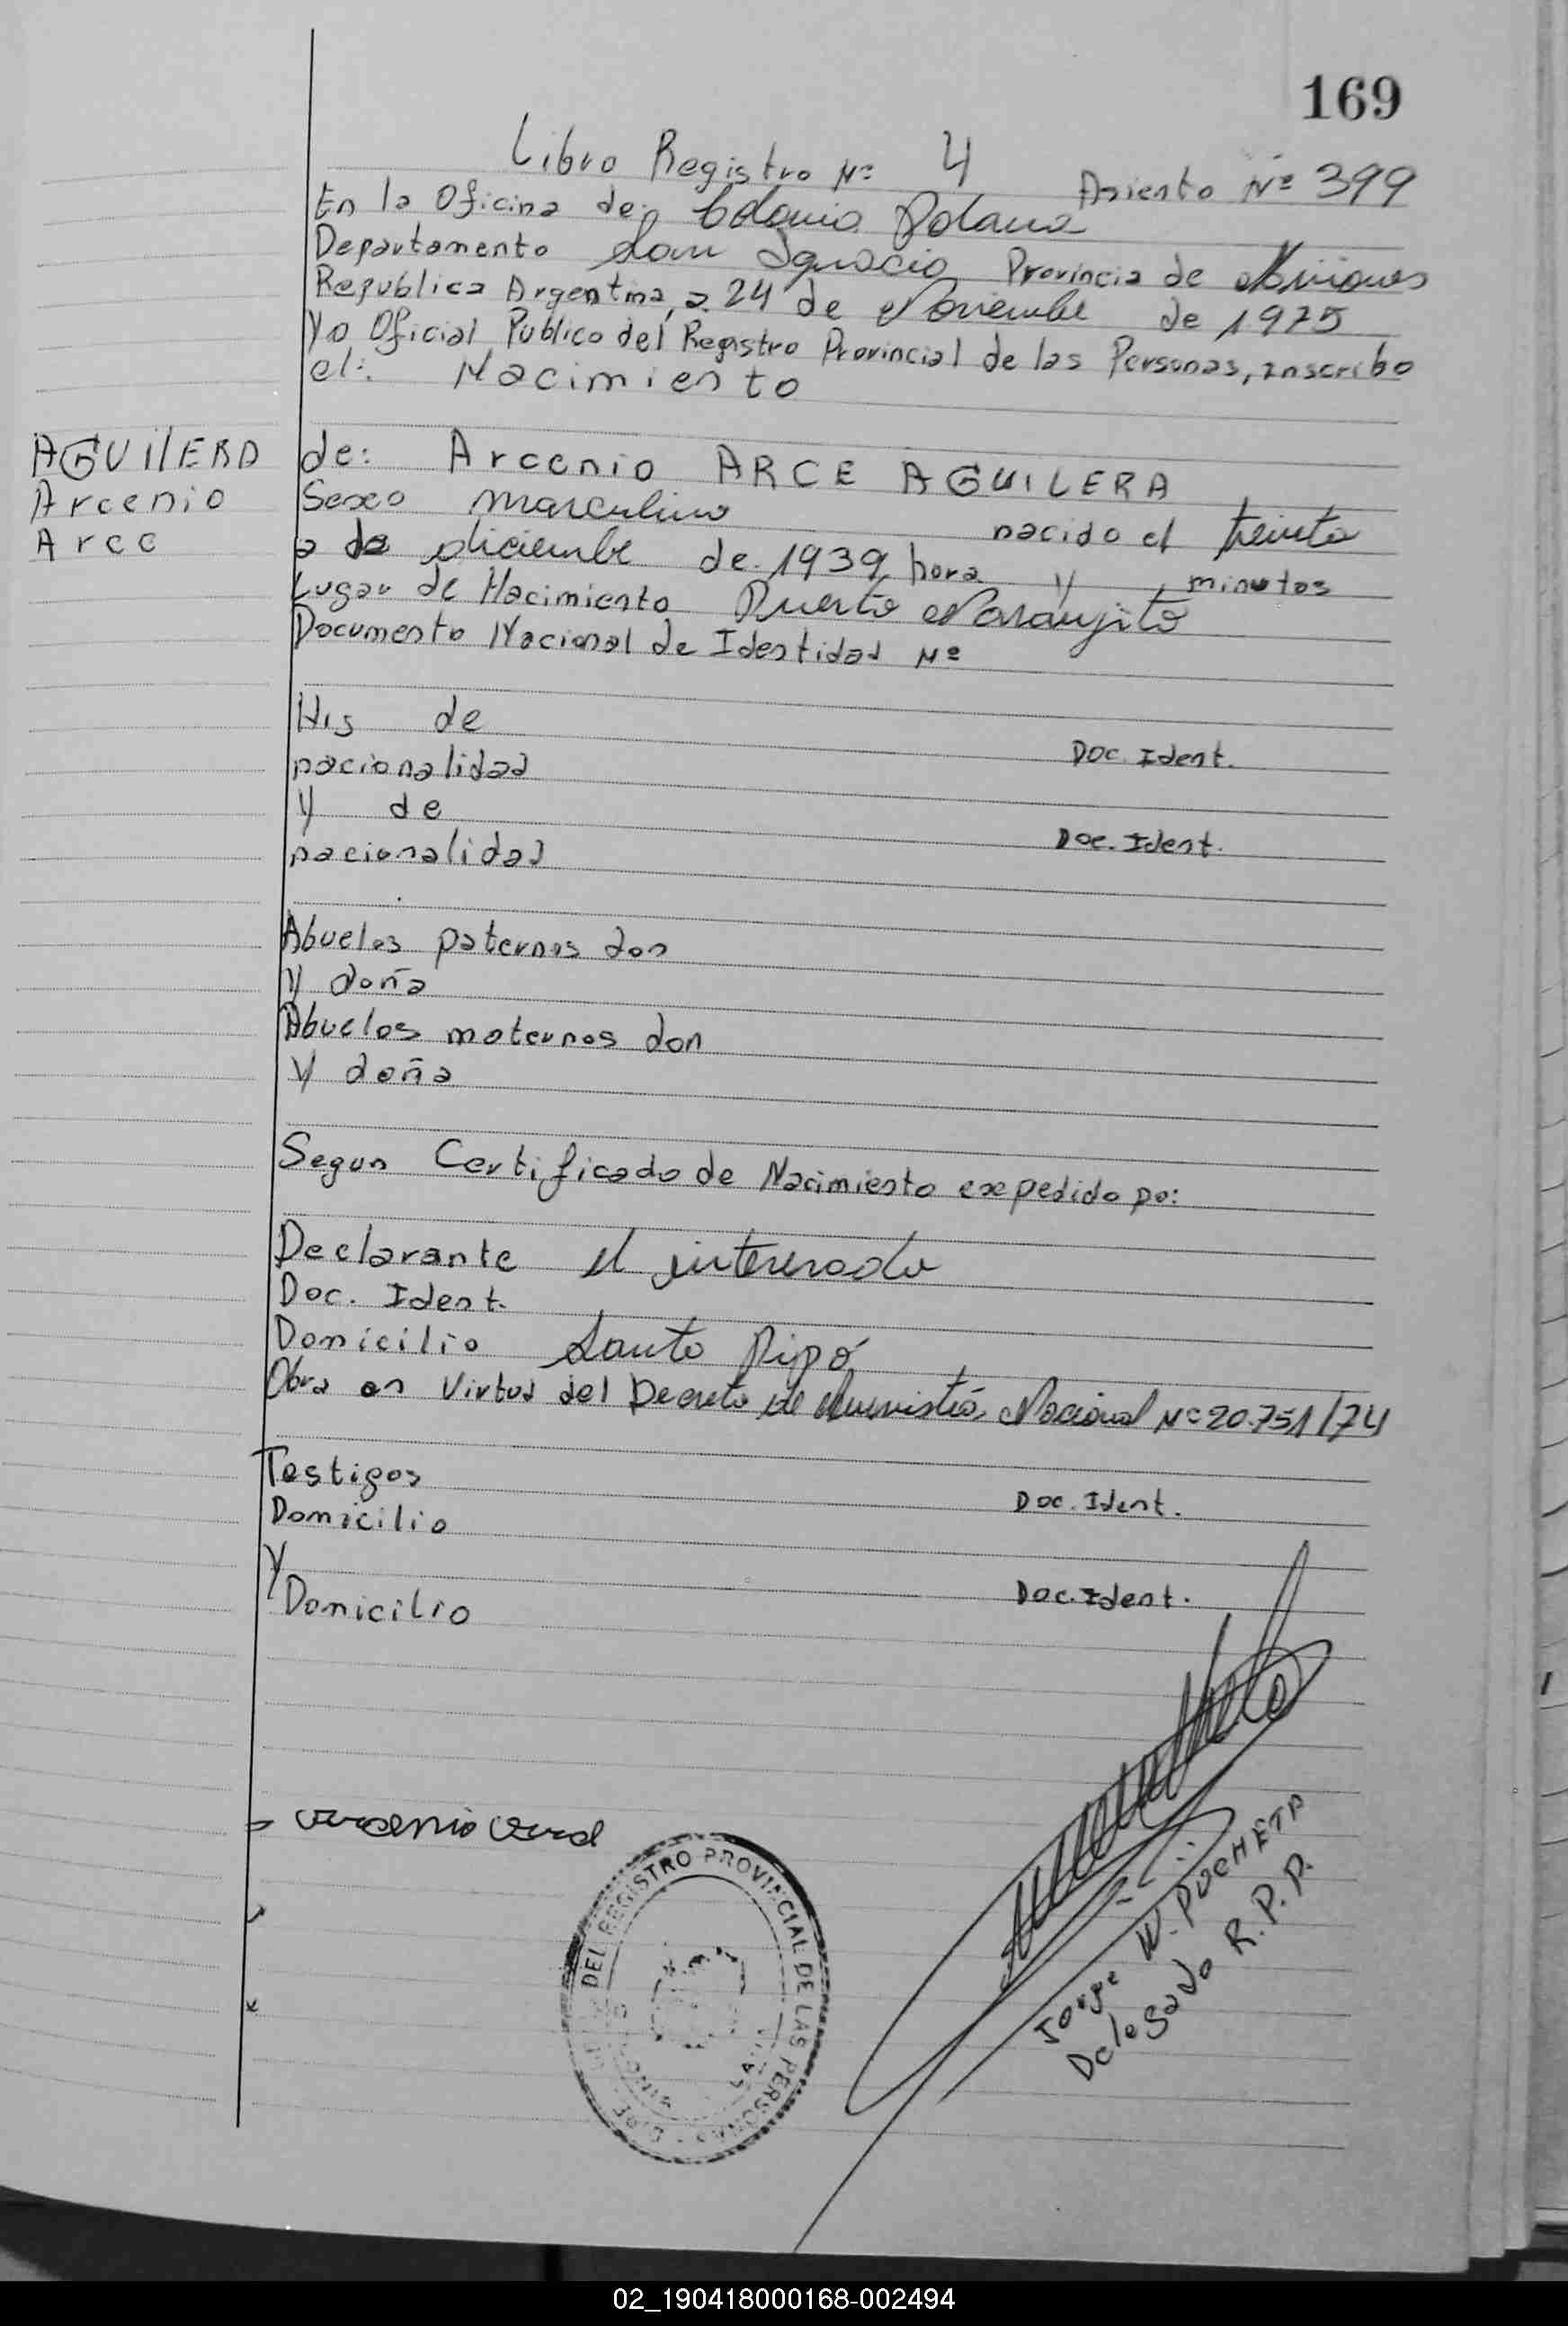 169
Libro Registro Nº 4 Asiento Nº 399
En la Oficina de: Colonia Polana
Departamento San Ignacio Provincia de Misiones
Republica Argentina, a 24 de Noviembre de 1975
Yo Oficial Publico del Registro Provincial de las Personas, inscribo
el: Nacimiento
AGUilERA de: Arcenio ARCE AGUILERA
Arcenio Sexo masculino nacido el treinta
Arce a de diciembre de 1939 hora y minutos
Lugar de Nacimiento Puerto Naranjito
Documento Nacional de Identidad Nº
His de
nacionalidad Doc. Ident.
y de
nacionalidad Doc. Ident.
Abuelos paternos don
y doña
Abuelos maternos don
y doña
Segun Certificado de Nacimiento expedido po:
Declarante el interesado
Doc. Ident.
Domicilio Santo Pipó
Obra en Virtud del Decreto de Amnistía Nacional Nº 20.751/74
Testigos Doc. Ident.
Domicilio
y Doc. Ident.
Domicilio
DEL REGISTRO PROVINCIAL DE LAS PERSONAS
Jorge W. POCHETA
Delegado R.P.P.
02_190418000168-002494